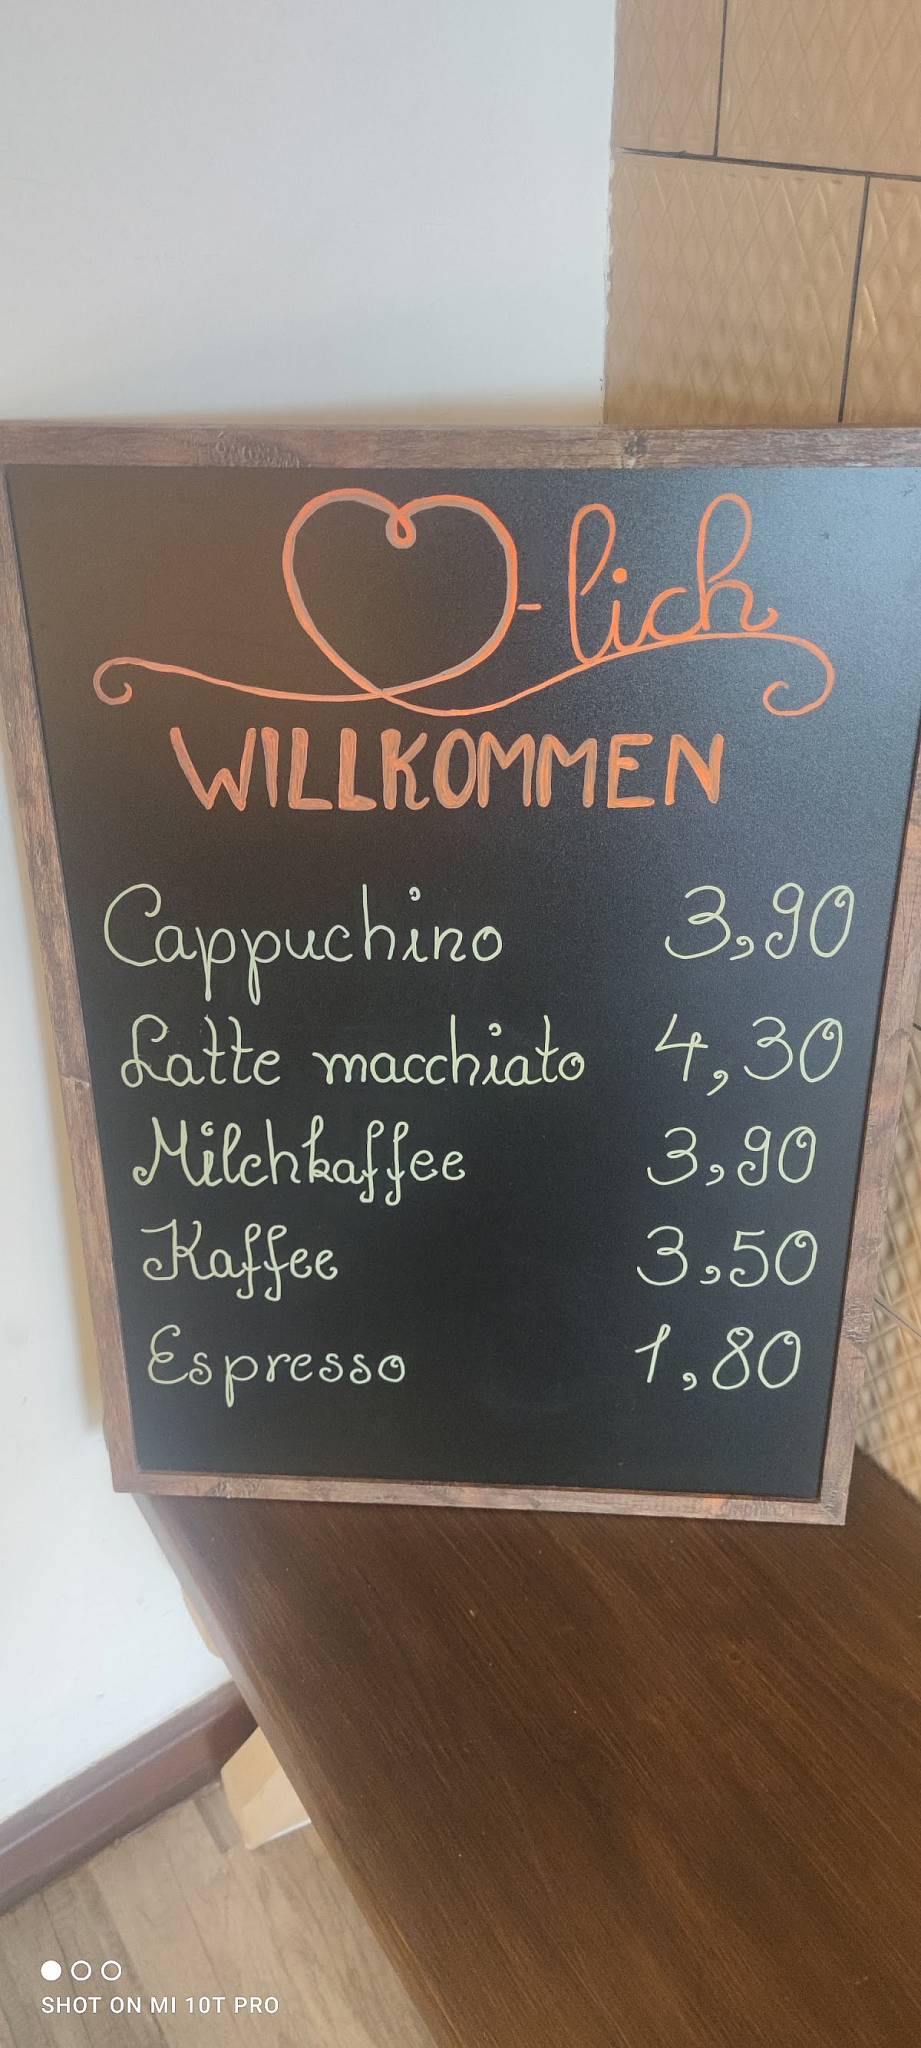 -lich
WILLKOMMEN
Cappuchino 3,90
Latte macchiato 4,30
Milchkaffee 3,90
Kaffee 3,50
Espresso 1,80
SHOT ON MI 10T PRO